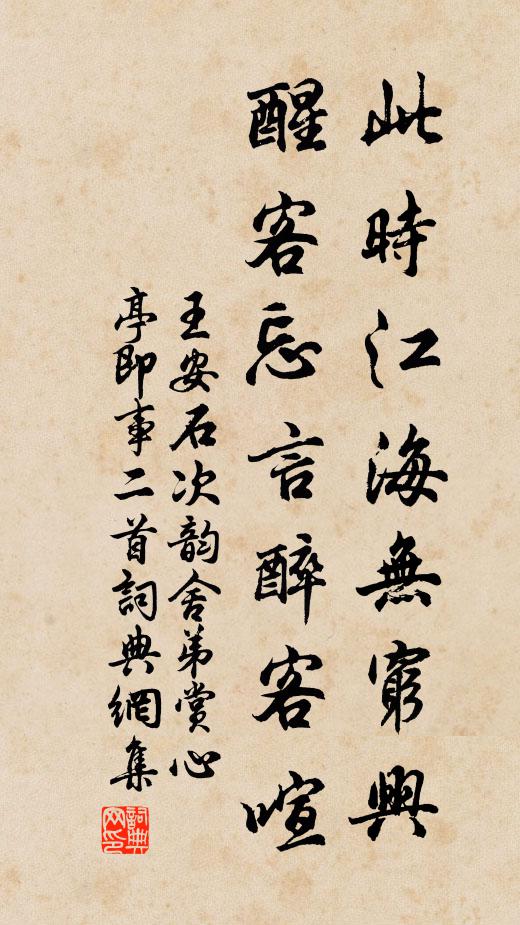 此時江海無窮興
醒客忘言醉客喧
王安石次韵舍弟賞心
亭即事二首詞典網集
詞典
网印